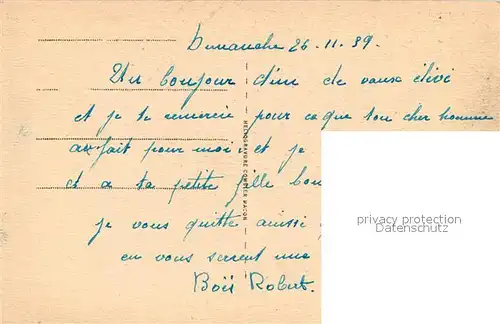 Dimanche 26-11-39.
Un bonjour d'un de vaux élivi
et je te remercie pour ce que ton cher homme
a fait pour moi, et je
et a ta petite fille bon
je vous quitte ainssi
en vous serrent une
Boii Robert.
HELIOGRAVURE COMBIER MACON
privacy protection
Datenschutz